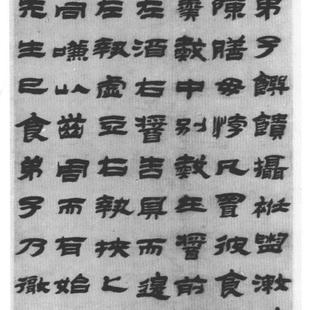 弟子饌饋攝衽盥漱
陳膳毋悖凡置彼食
羹胾中別胾在醬前
左酒右醬告具而退
左執虛豆右執挾匕
同嗛以齒周而有始
先生已食弟子乃徹